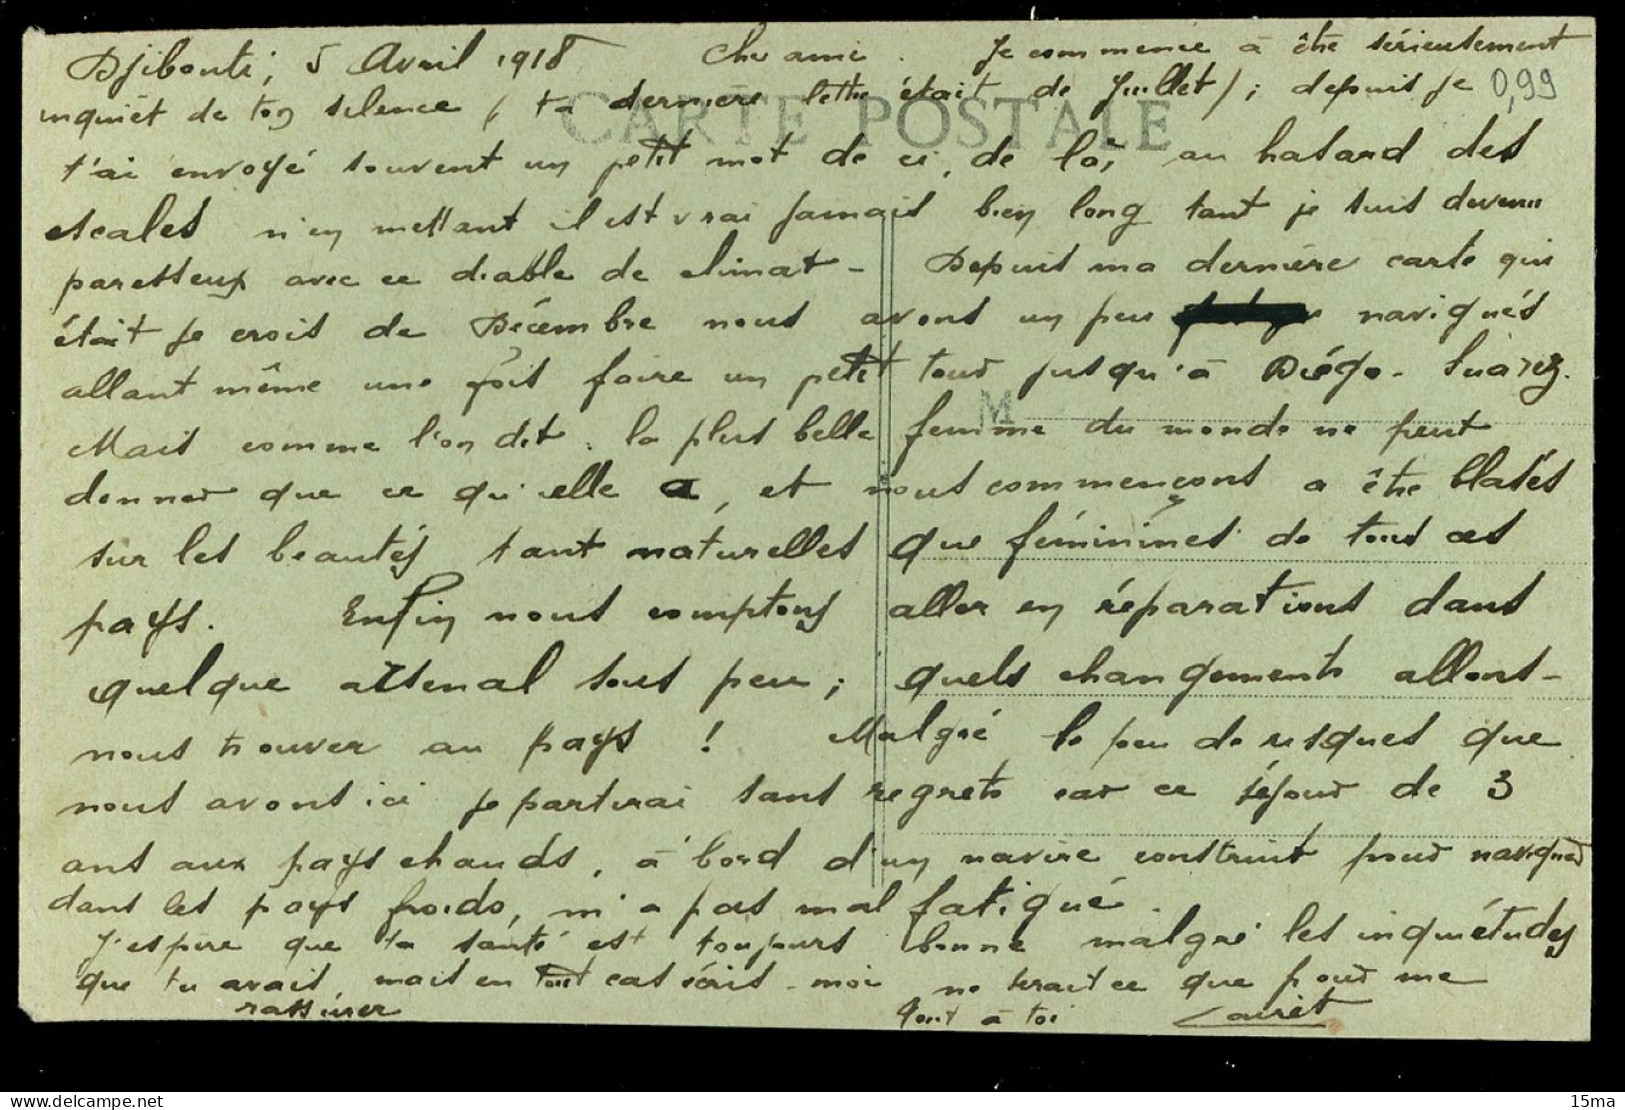 Djibouti, 5 Avril 1918 Cher ami. Je commence à être sérieusement
inquiet de ton silence, (ta dernière lettre était de Juillet); depuis je 0,99
CARTE POSTALE
t'ai envoyé souvent un petit mot de ci, de là, au hasard des
escales n'en mettant il est vrai jamais bien long tant je suis devenu
paresseux avec ce diable de climat - Depuis ma dernière carte qui
était je crois de Décembre nous avons un peu navigués
allant même une fois faire un petit tour jusqu'à Diégo-Suarez.
M
Mais comme l'on dit: la plus belle femme du monde ne peut
donner que ce qu'elle a, et nous commençons a être blasés
sur les beautés tant naturelles que féminines de tous ces
pays. Enfin nous comptons aller en réparations dans
quelque arsenal sous peu; quels changements allons-
nous trouver au pays! Malgré le peu de risques que
nous avons ici je partirai sans regrets car ce séjour de 3
ans aux pays chauds, à bord d'un navire construit pour naviguer
dans les pays froids, m'a pas mal fatigué.
J'espère que ta santé est toujours bonne malgré les inquiétudes
que tu avais, mais en tout cas écris-moi ne serait ce que pour me
rassurer Tout à toi
15ma